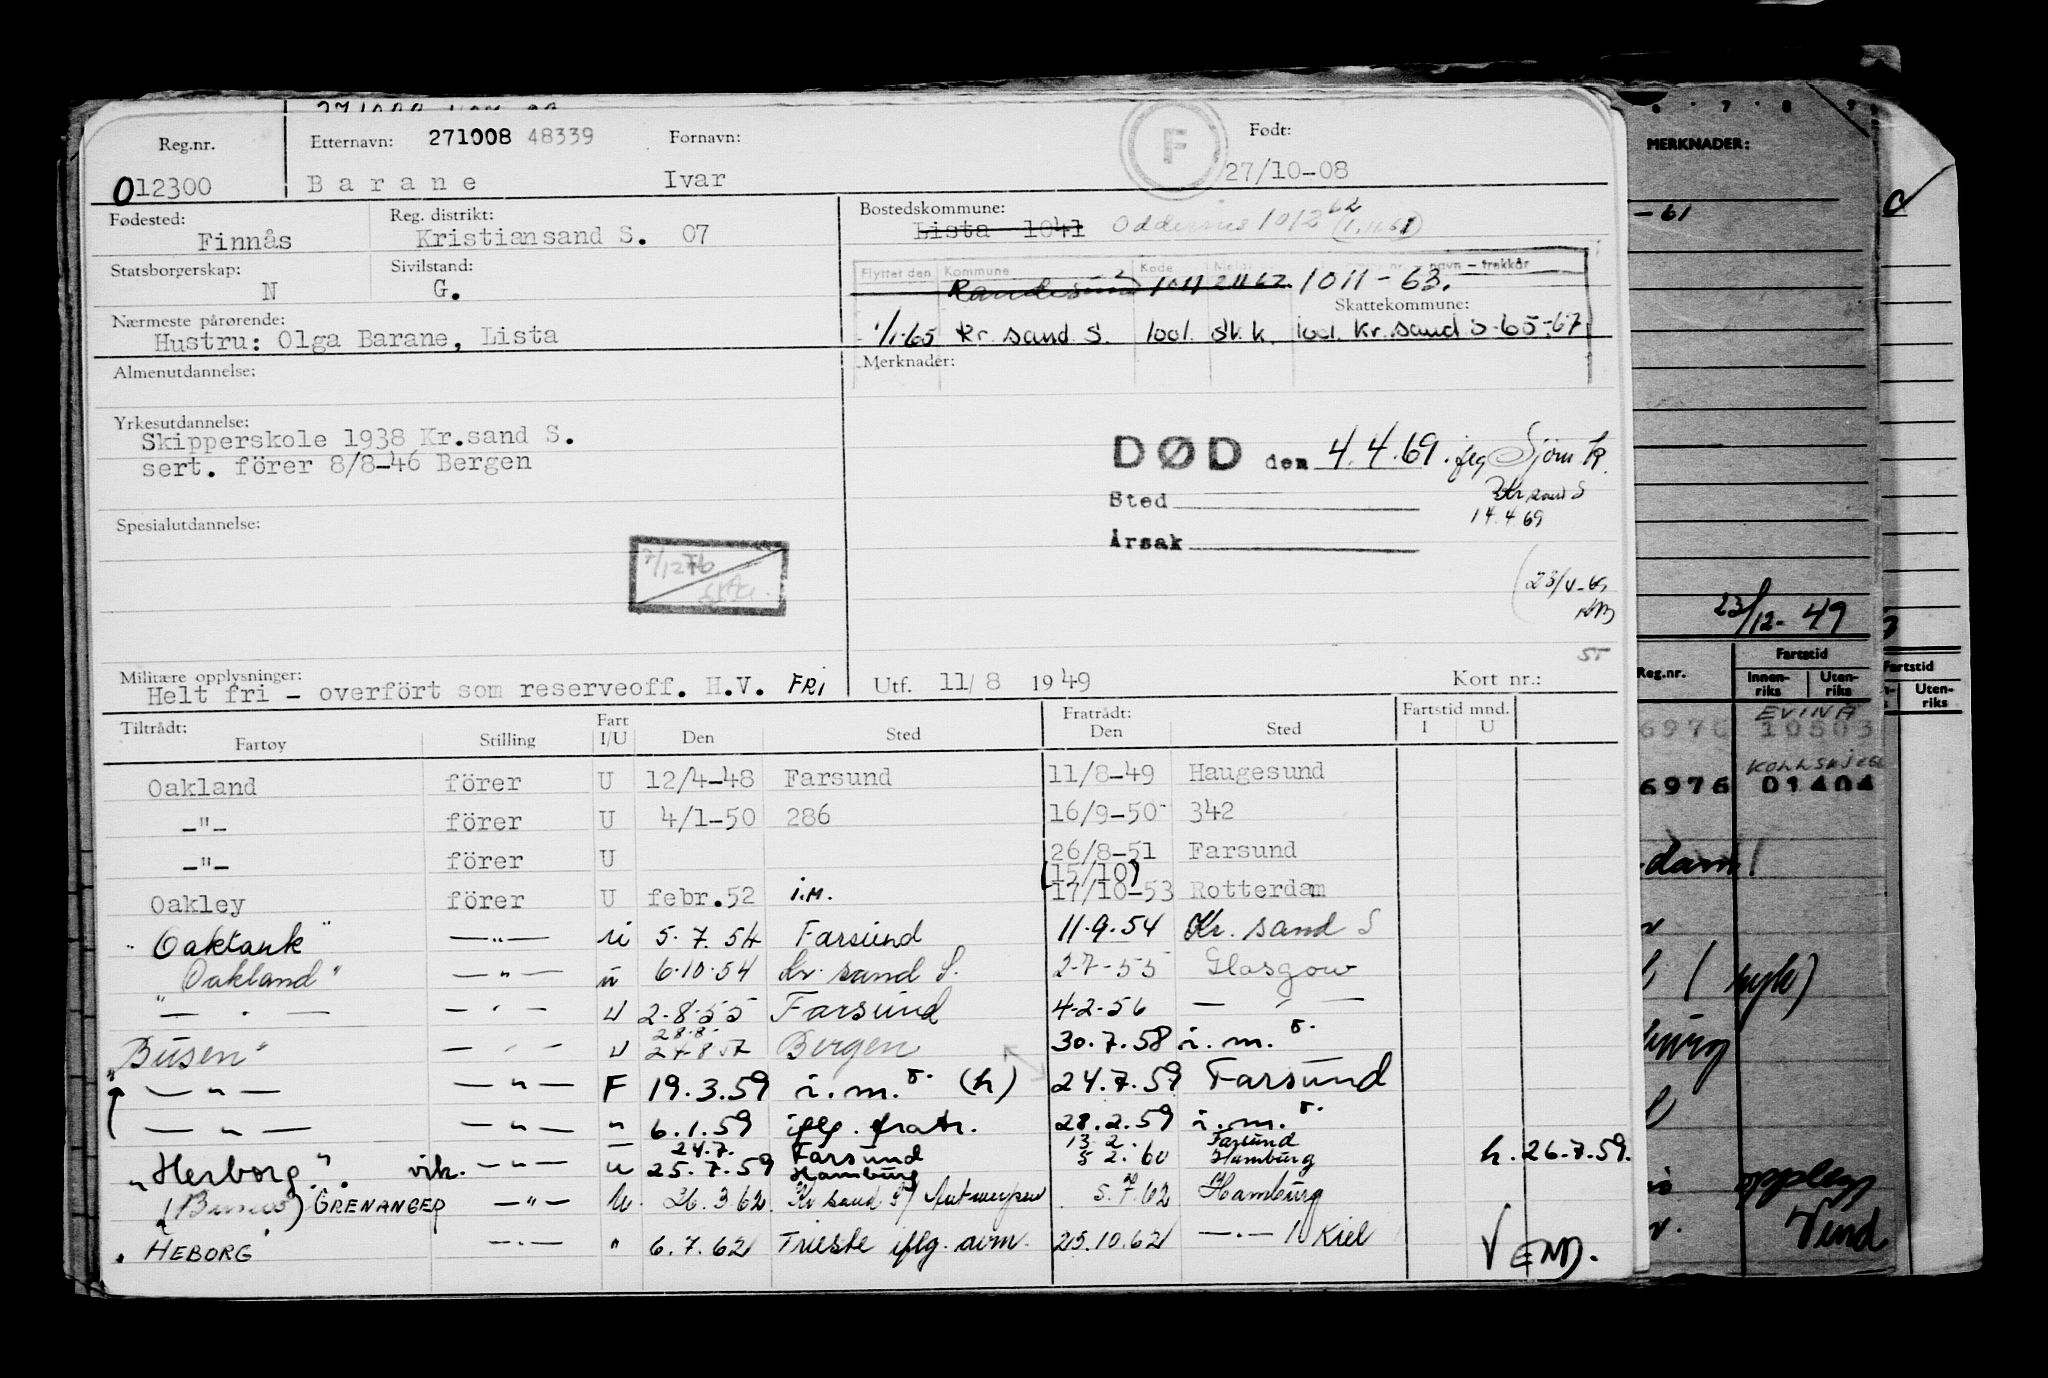 Reg.nr. Etternavn: 271008 48339 Fornavn: F Født:
012300 Barane Ivar 27/10-08
Fødested: Reg. distrikt: Bostedskommune:
Finnås Kristiansand S. 07 Lista 1041 Oddernes 1012 62 (1.11.61)
Statsborgerskap: Sivilstand: Flyttet den Kommune Kode navn - trekkår
N G. Randesund 1011 21162 1011-63.
Nærmeste pårørende: Skattekommune:
Hustru: Olga Barane, Lista 1/1-65 Kr. sand S. 1001. sk.k. 1001. Kr.sand S-65-67
Almenutdannelse: Merknader:
Yrkesutdannelse:
Skipperskole 1938 Kr.sand S.
sert. förer 8/8-46 Bergen
DØD den 4.4.69. Sjöm k.
Kr sand S
Sted 14.4 69
Spesialutdannelse:
Årsak
7/12 76
23/4-69
Militære opplysninger:
Helt fri - overfört som reserveoff. H.V. FRI Utf. 11/8 1949 Kort nr.:
Tiltrådt: Fart Fratrådt: Fartstid mnd.
Fartøy Stilling I/U Den Sted Den Sted I U
Oakland förer U 12/4-48 Farsund 11/8-49 Haugesund
-"- förer U 4/1-50 286 16/9-50 342
-"- förer U 26/8-51 Farsund
(15/10)
Oakley förer U febr.52 i.m. 17/10-53 Rotterdam
"Oaktank" —"— u 5.7.54 Farsund 11.9.54 Kr. sand S
"Oakland" —"— u 6.10.54 Kr. sand S. 2-7-55 Glasgow
— " — — " — U 2-8-55 Farsund 4-2-56 — " —
28.8.
"Busen" — " — U 24-8 57 Bergen 30.7.58 i.m.
— " — — " — F 19.3.59 i.m. (h) 24.7.59 Farsund
— " — — " — " 6.1.59 iflg. fratr. 28.2.59 i.m.
24.7. Farsund 13 2. Farsund
"Herborg" vik. — " — u 25.7.59 Hamburg 5 2.60 Hamburg h. 26.7.59.
GRENANGER — " — u. 26.3.62 Kr sand S/ Antwerpen 5.7.62 Hamburg
"HEBORG" — " — " 6.7.62 Trieste iflg. avm. 25.10.62 — " — / Kiel
VEND.
MERKNADER:
-61
23/12-49
Fartstid
Reg.nr. Innenriks Utenriks
EVINA
6976 10503
6976 01404
-dam/
oppleg
Vend
Fartstid
Utenriks